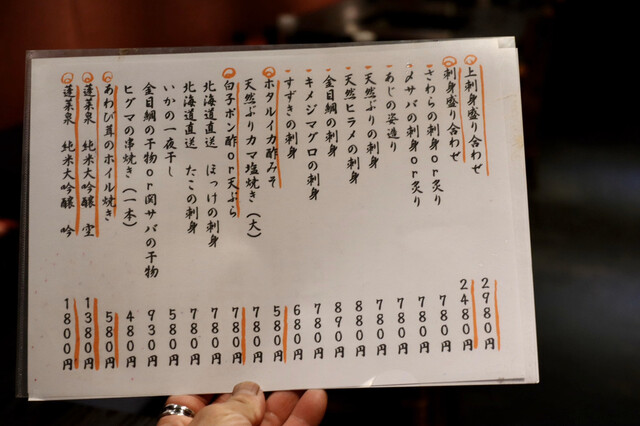 上刺身盛り合わせ 2980円
刺身盛り合わせ 2480円
さわらの刺身or炙り 780円
〆サバの刺身or炙り 780円
あじの姿造り 780円
天然ぶりの刺身 780円
天然ヒラメの刺身 880円
金目鯛の刺身 890円
キメジマグロの刺身 780円
すずきの刺身 680円
ホタルイカ酢みそ 580円
天然ぶりカマ塩焼き(大) 780円
白子ポン酢or天ぷら 780円
北海道直送 ほっけの刺身 780円
北海道直送 たこの刺身 780円
いかの一夜干し 580円
金目鯛の干物or岡サバの干物 930円
ヒグマの串焼き(一本) 480円
あわび茸のホイル焼き 580円
蓬莱泉 純米大吟醸 空 1380円
蓬莱泉 純米大吟醸 吟 1800円